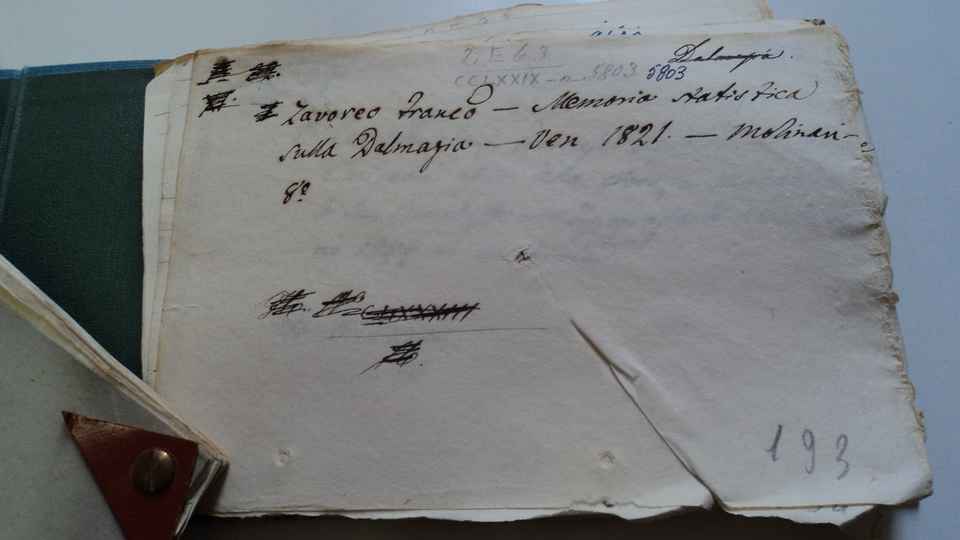 Dalmazia.
CCLXXIX-a 5803 5803
Zavoreo Franco — Memoria statistica
sulla Dalmazia — Ven 1821. — Molinari —
8º
193